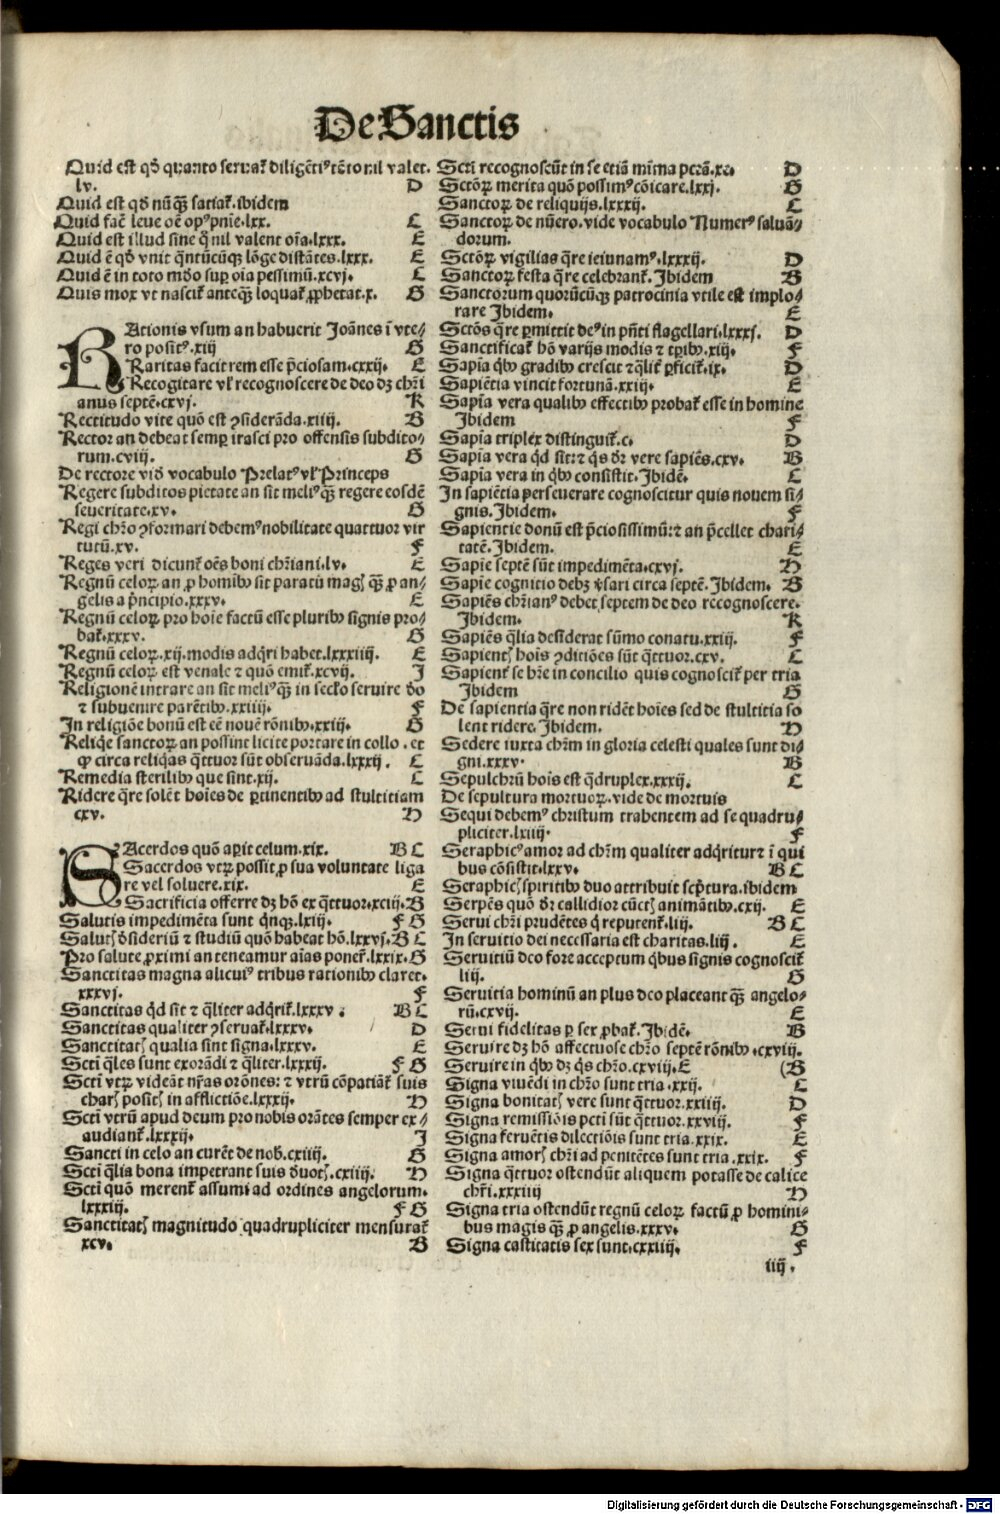 De Sanctis
Quid est qđ quanto seruat̃ diligẽtiꝰ tẽto nil valet.
lv. D
Quid est qđ nũq̃ꝫ satiat̃.ibidem
Quid facẽ leue oẽ opꝰ pnĩe.lxx. C
Quid est illud sine q̃ nil valent oĩa.lxxx. E
Quid ẽ qđ vnit q̃ntũcũqꝫ lõge distãtes.lxxx. E
Quid ẽ in toto mũdo suꝑ oĩa pessimũ.xcvj. C
Quis mox vt nascit̃ anteq̃ꝫ loquat̃ ꝓphetat.x. G
RAtionis vsum an habuerit Joãnes ĩ vte/
ro positꝰ.xiij G
Raritas facit rem esse p̃ciosam.cxxij. E
Recogitare vl̃ recognoscere de deo dꝫ chr̃i
anus septẽ.cxvj. K
Rectitudo vite quõ est ꝯsiderãda.xiiij. B
Rector an debeat semꝑ irasci pro offensis subdito/
rum.cviij. G
De rectore vid̃ vocabulo Prelatꝰ vl̃ Princeps
Regere subditos pietate an sit meliꝰ q̃ꝫ regere eosdẽ
seueritate.xv. G
Regi chr̃o ꝯformari debemꝰ nobilitate quattuor vir
tutũ.xv. F
Reges veri dicunt̃ oẽs boni chr̃iani.lv. E
Regnũ celoꝝ an ꝓ homĩbꝰ sit paratũ magꝭ q̃ꝫ ꝓ an/
gelis a p̃ncipio.xxxv. E
Regnũ celoꝝ pro hoĩe factũ esse pluribꝰ signis pro/
bat̃.xxxv. G
Regnũ celoꝝ.xij.modis adq̃ri habet.lxxxiiij. E
Regnũ celoꝝ est venale ⁊ quõ emit̃.xcvij. J
Religionẽ intrare an sit meliꝰ q̃ꝫ in sec̃lo seruire do
⁊ subuenire parẽtibꝰ.xxiiij. F
In religiõe bonũ est eẽ nouẽ rõnibꝰ.xxiij. G
Reliq̃e sanctoꝝ an possint licite portare in collo . et
ꝙ circa reliq̃as q̃ttuor sũt obseruãda.lxxxij . C
Remedia sterilibꝰ que sint.xij. C
Ridere q̃re solẽt hoĩes de ꝑtinentibꝰ ad stultitiam
cxv. H
SAcerdos quõ aperit celum.xix. B C
Sacerdos vtꝝ possit ꝓ sua voluntate liga
re vel soluere.xix. E
Sacrificia offerre dꝫ hõ ex q̃ttuor.xciij.B
Salutis impedimẽta sunt q̃nqꝫ.lxiij. F G
Salutꝭ desideriũ ⁊ studiũ quõ habeat hõ.lxxvj.B C
Pro salute ꝓximi an teneamur aĩas ponere.lxxix.G
Sanctitas magna alicuiꝰ tribus rationibꝰ claret.
xxxvj. F
Sanctitas q̃d sit ⁊ q̃liter adq̃rit̃.lxxxv . B C
Sanctitas qualiter ꝯseruat̃.lxxxv. D
Sanctitatꝭ qualia sint signa.lxxxv. E
Sctĩ q̃les sunt exorãdi ⁊ q̃liter.lxxxij. F G
Sctĩ vtꝝ videãt nr̃as orõnes: ⁊ vtrũ cõpatiãt̃ suis
charꝭ positꝭ in afflictiõe.lxxxij. H
Sctĩ vtrũ apud deum pro nobis orãtes semper ex/
audiant̃.lxxxij. J
Sancti in celo an curẽt de nob̃.cxiiij. G
Sctĩ q̃lia bona impetrant suis deuotꝭ.cxiiij. H
Sctĩ quõ merent̃ assumi ad ordines angelorum.
lxxxiij. F G
Sanctitatꝭ magnitudo quadrupliciter mensurat̃
xcv. B
Sctĩ recognoscũt in se etiã mĩma pctã.xc. D
Sctõꝝ merita quõ possimꝰ cõicare.lxxj. G
Sanctoꝝ de reliquijs.lxxxij. C
Sanctoꝝ de nũero.vide vocabulo Numerꝰ saluã/
dorum.
Sctõꝝ vigilias q̃re ieiunamꝰ.lxxxij. D
Sanctoꝝ festa q̃re celebrant̃.Ibidem B
Sanctorum quorũcũqꝫ patrocinia vtile est implo/
rare Ibidem. E
Sctõs q̃re ꝑmittit deꝰ in pñti flagellari.lxxxj. D
Sanctificat̃ hõ varijs modis ⁊ tp̃ibꝰ.xiij. F
Sapĩa q̃bꝰ gradibꝰ crescit ⁊ q̃lit̃ ꝑficit̃.ix. D
Sapiẽtia vincit fortunã.xxiij. E
Sapĩa vera qualibꝰ effectibꝰ probat̃ esse in homine
Ibidem F
Sapĩa triplex distinguit̃.c. D
Sapĩa vera q̃d sit: ⁊ q̃s dr̃ vere sapiẽs.cxv. B
Sapĩa vera in q̃bꝰ consistit.Ibidẽ. C
In sapiẽtia perseuerare cognoscitur quis nouem si/
gnis.Ibidem. F
Sapientie donũ est p̃ciosissimũ: ⁊ an p̃cellet chari/
tatẽ.Ibidem. E
Sapĩe septẽ sũt impedimẽta.cxvj. H
Sapĩe cognitio debꝫ v̓sari circa septẽ.Ibidem. B
Sapiẽs chr̃ianꝰ debet septem de deo recognoscere.
Ibidem. K
Sapiẽs q̃lia desiderat sũmo conatu.xxiij. F
Sapientꝭ hoĩs ꝯditiões sũt q̃ttuor.cxv. C
Sapient̃ se hr̃e in concilio quis cognoscit̃ per tria
Ibidem G
De sapientia q̃re non ridẽt hoĩes sed de stultitia so
lent ridere.Ibidem. H
Sedere iuxta chr̃m in gloria celesti quales sunt di/
gni.xxxv. B
Sepulchrũ hoĩs est q̃druplex.xxxij. C
De sepultura mortuoꝝ.vide de mortuis
Sequi debemꝰ christum trahentem ad se quadru/
pliciter.lxiiij. F
Seraphicꝰ amor ad chr̃m qualiter adq̃ritur ⁊ ĩ qui
bus cõsistit.lxxv. B C
Seraphicꝭ spiritibꝰ duo attribuit sc̃ptura.ibidem
Serpẽs quõ dr̃ callidior cũctꝭ animãtibꝰ.cxij. E
Serui chr̃i prudẽtes q̃ reputent̃.liij. B C
In seruitio dei necessaria est charitas.liij . E
Seruitiũ deo fore acceptum q̃bus signis cognoscit̃
liij. G
Seruitia hominũ an plus deo placeant q̃ꝫ angelo/
rũ.cxvij. E
Serui fidelitas ꝑ sex ꝓbat̃.Ibidẽ. B
Seruire dꝫ hõ affectuose chr̃o septẽ rõnibꝰ.cxviij.
Seruire in q̃bꝰ dꝫ q̃s chr̃o.cxviij.E (B
Signa viuẽdi in chr̃o sunt tria .xxij. C
Signa bonitatꝭ vere sunt q̃ttuor.xxiiij. D
Signa remissiõis pctĩ sũt q̃ttuor.xxviij. F
Signa feruẽtis dilectiõis sunt tria.xxix. E
Signa amorꝭ chr̃i ad penitẽtes sunt tria .xxix. F
Signa q̃ttuor ostendũt aliquem potasse de calice
chr̃i.xxxiiij H
Signa tria ostendũt regnũ celoꝝ factũ ꝓ homini/
bus magis q̃ꝫ ꝓ angelis.xxxv. G
Signa castitatis sex sunt.cxxiij. F
iiij.
Digitalisierung gefördert durch die Deutsche Forschungsgemeinschaft - DFG